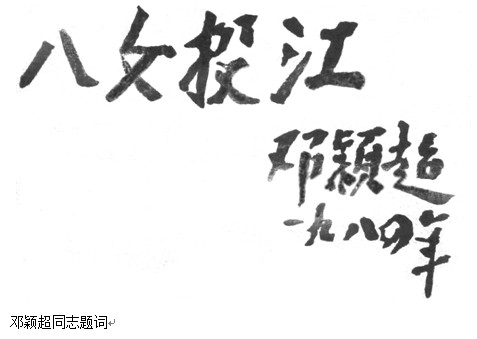 八女投江
邓颖超
一九八四年
邓颖超同志题词